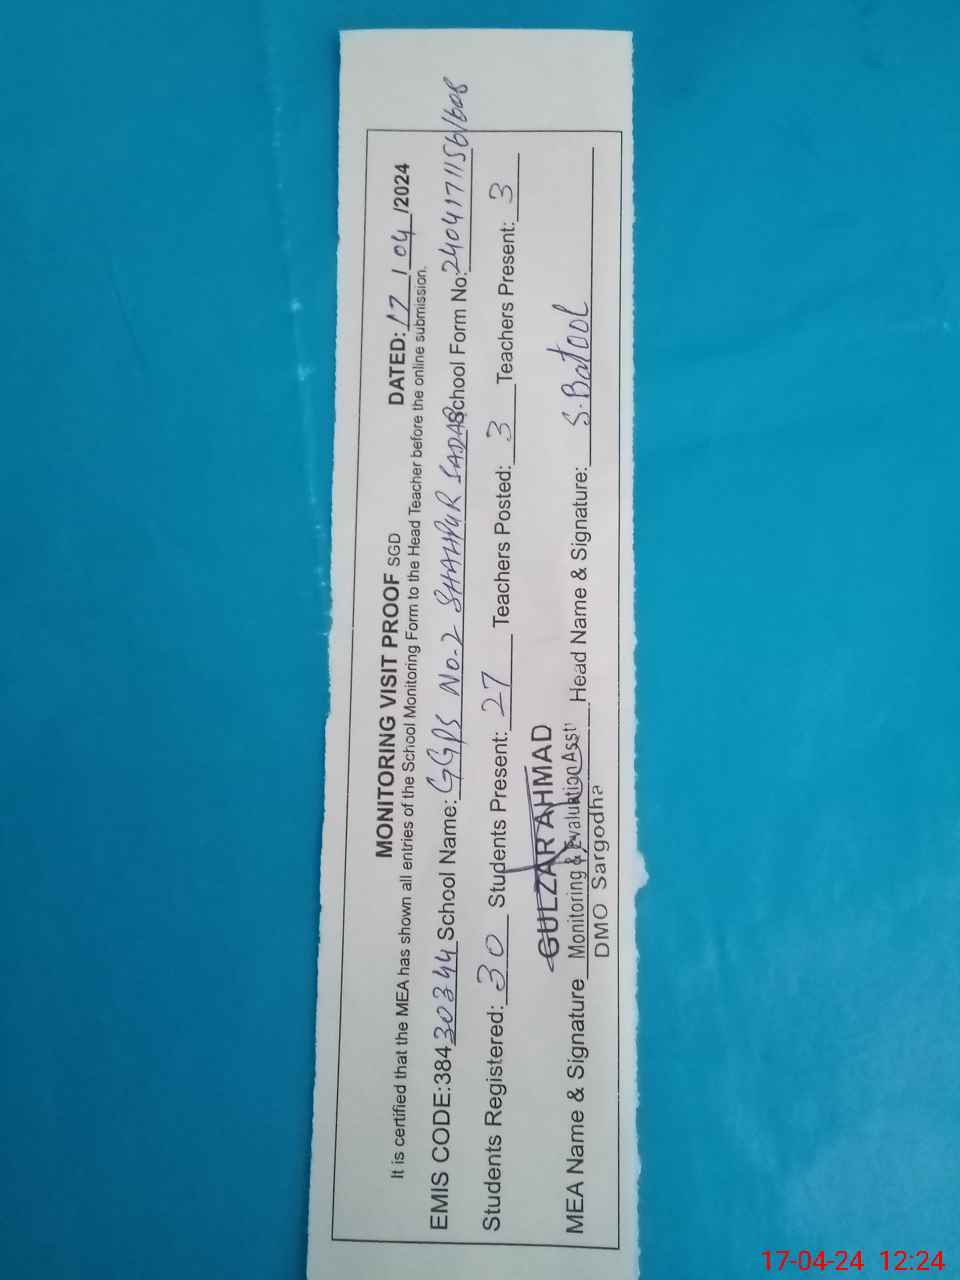 MONITORING VISIT PROOF SGD DATED: 17 / 04 /2024
It is certified that the MEA has shown all entries of the School Monitoring Form to the Head Teacher before the online submission.
EMIS CODE:38430344 School Name: GGPS No.2 SHAHPUR SADAR School Form No: 240417115616608
Students Registered: 30 Students Present: 27 Teachers Posted: 3 Teachers Present: 3
GULZAR AHMAD
MEA Name & Signature Monitoring & Evaluation Asst Head Name & Signature: S.Batool
DMO Sargodha
17-04-24 12:24